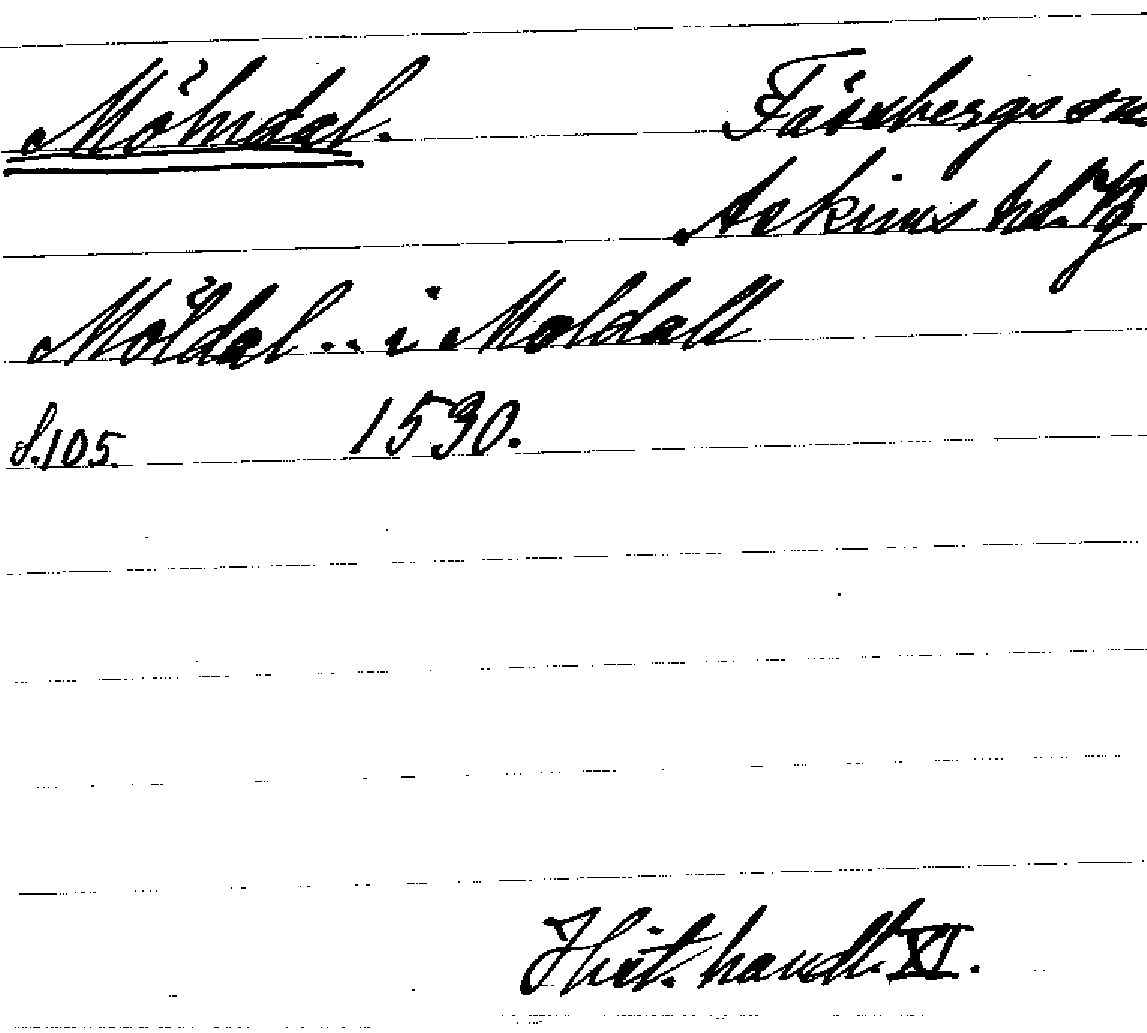 Mölndal. Fässbergs sn
Askims hd. Vg.
Möldal .. i Moldall
S. 105. 1530.
Hist. handl. XI.